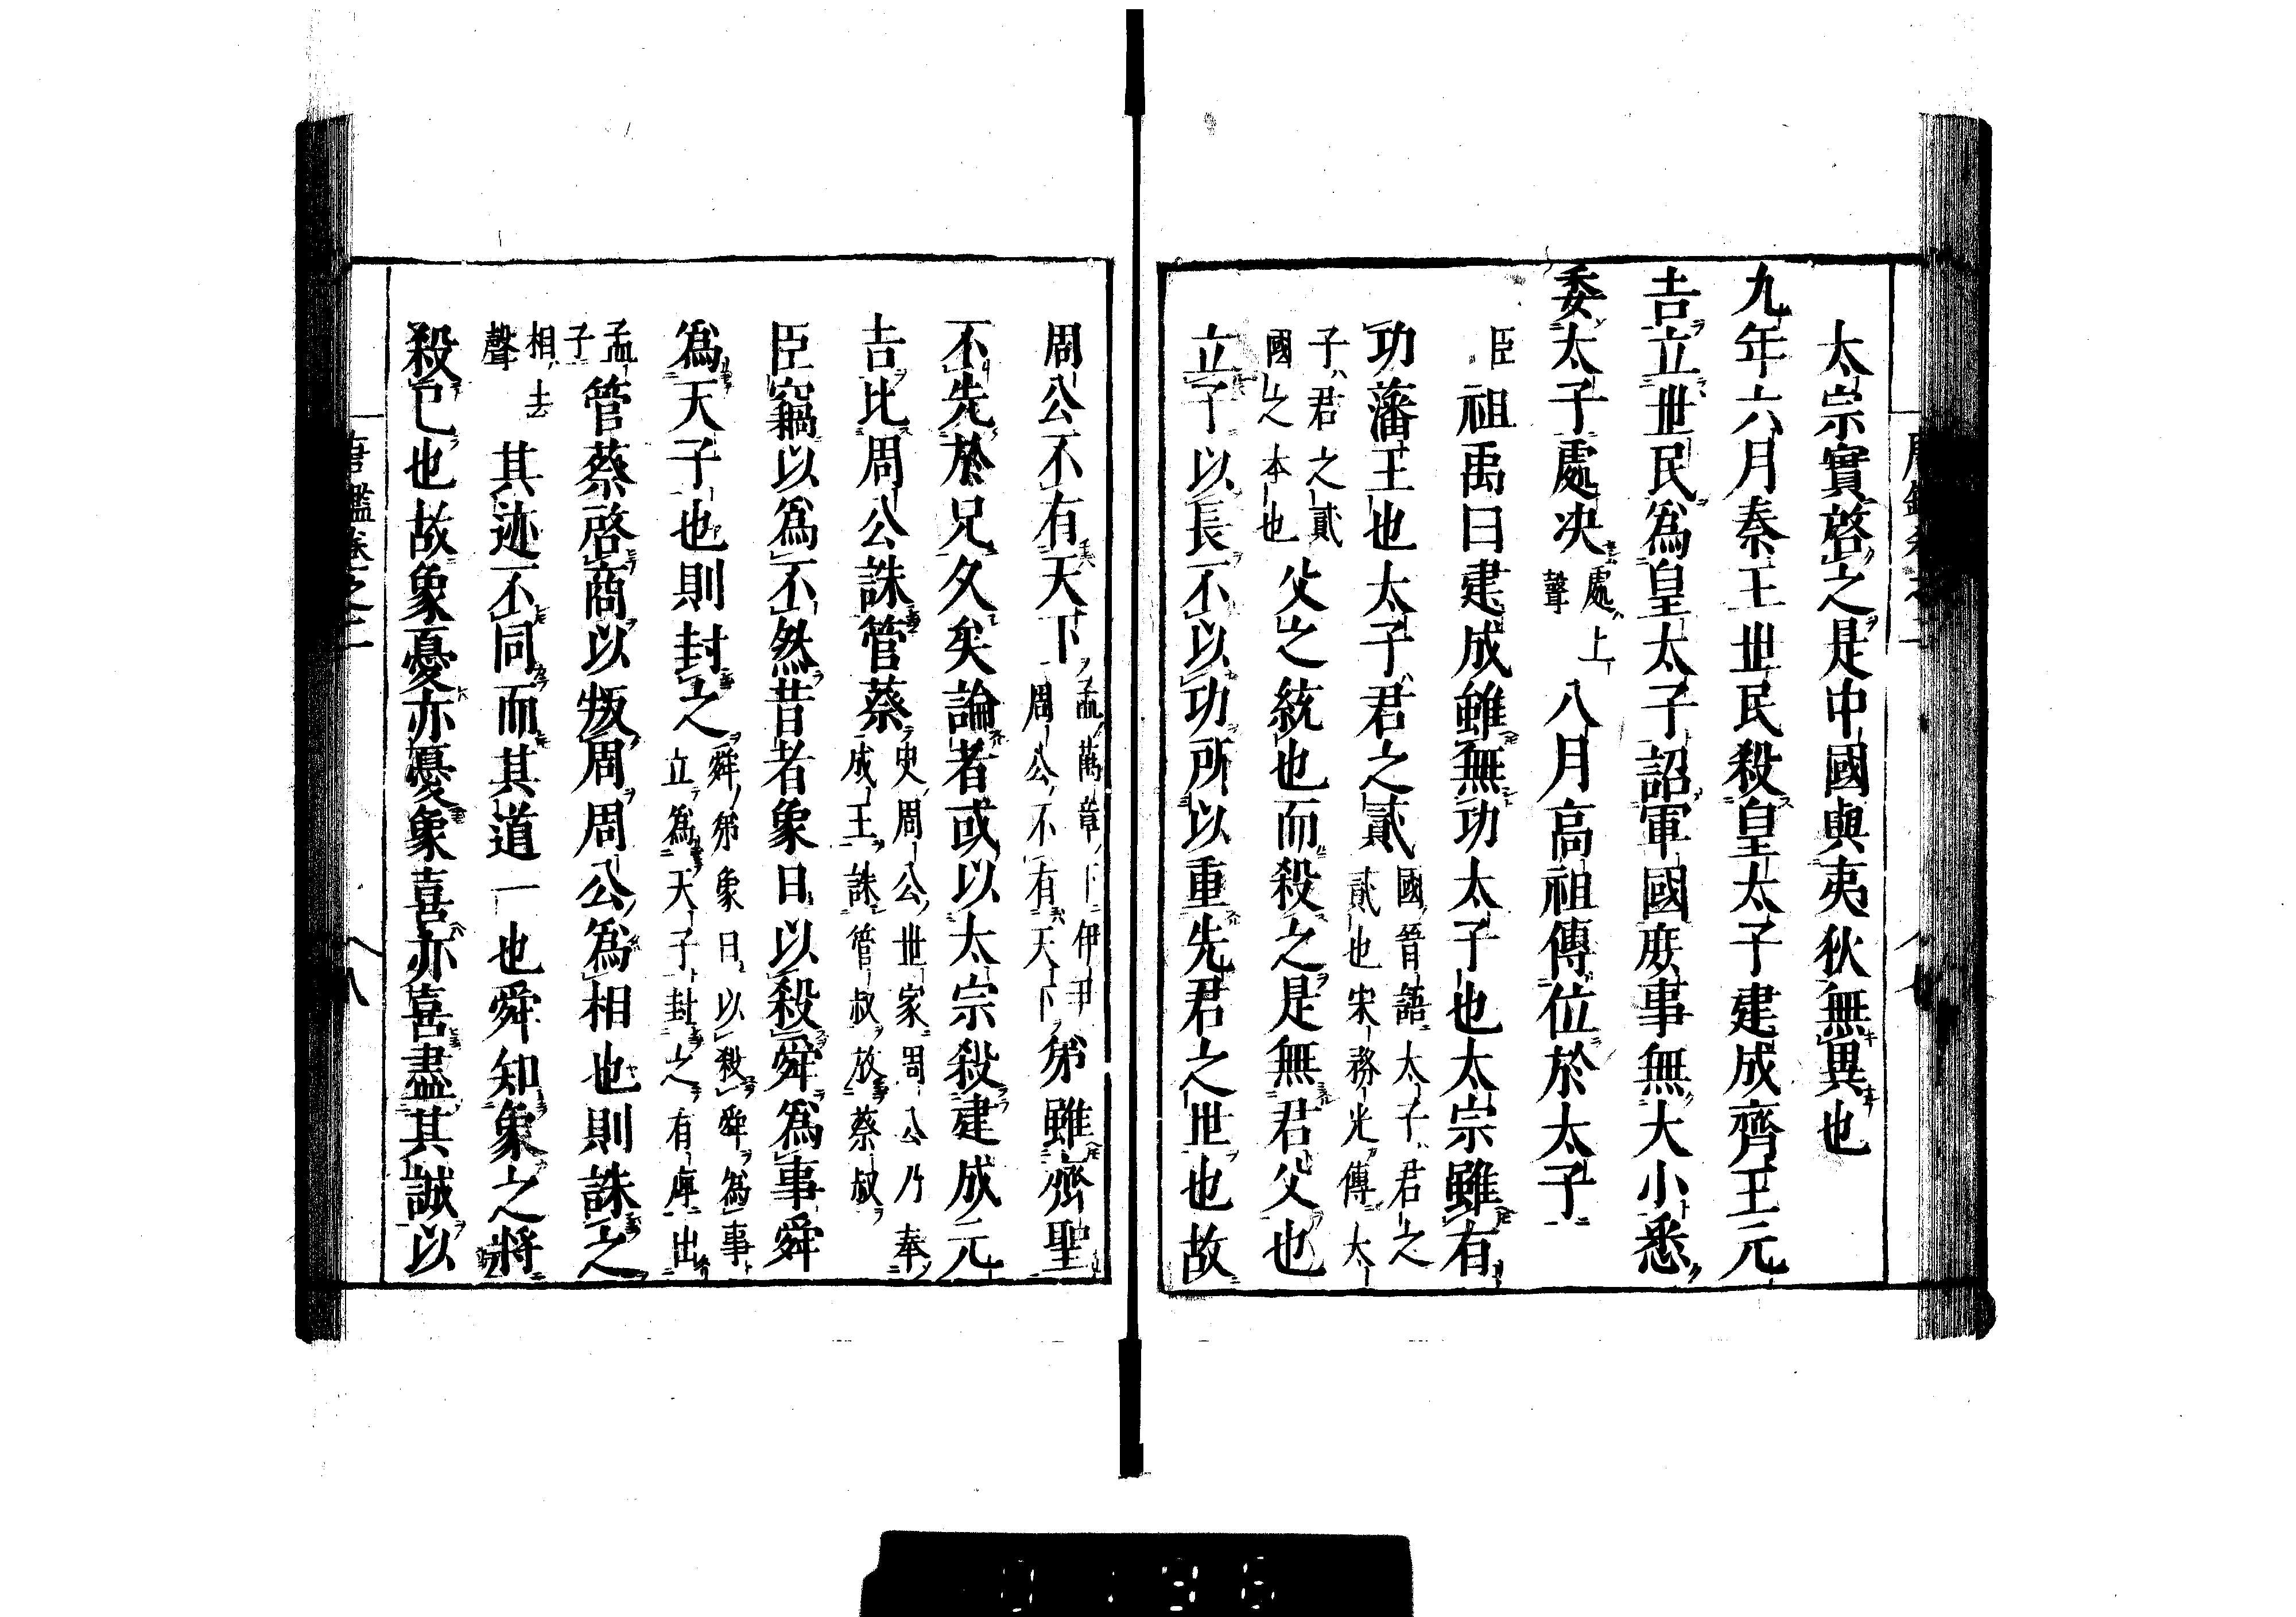 太宗實啓之是中國與夷狄無異也
九年六月秦王世民殺皇太子建成齊王元
吉立世民爲皇太子詔軍國庶事無大小悉
委太子處决處上聲八月高祖傳位於太子
臣祖禹曰建成雖無功太子也太宗雖有
功藩王也太子君之貳國晉語太子君之貳也宋務光傳太
子君之貳國之本也父之統也而殺之是無君父也
立子以長不以功所以重先君之世也故
周公不有天下孟萬章下伊尹周公不有天下弟雖齊聖
不先於兄久矣論者或以太宗殺建成元
吉比周公誅管蔡史周公世家周公乃奉成王誅管叔放蔡叔
臣竊以爲不然昔者象日以殺舜爲事舜
爲天子也則封之舜弟象日以殺舜爲事立爲天子封之有庳出
孟子管蔡啓商以叛周周公爲相也則誅之
相去聲其迹不同而其道一也舜知象之將
殺已也故象憂亦憂象喜亦喜盡其誠以
唐鑑卷之二
八